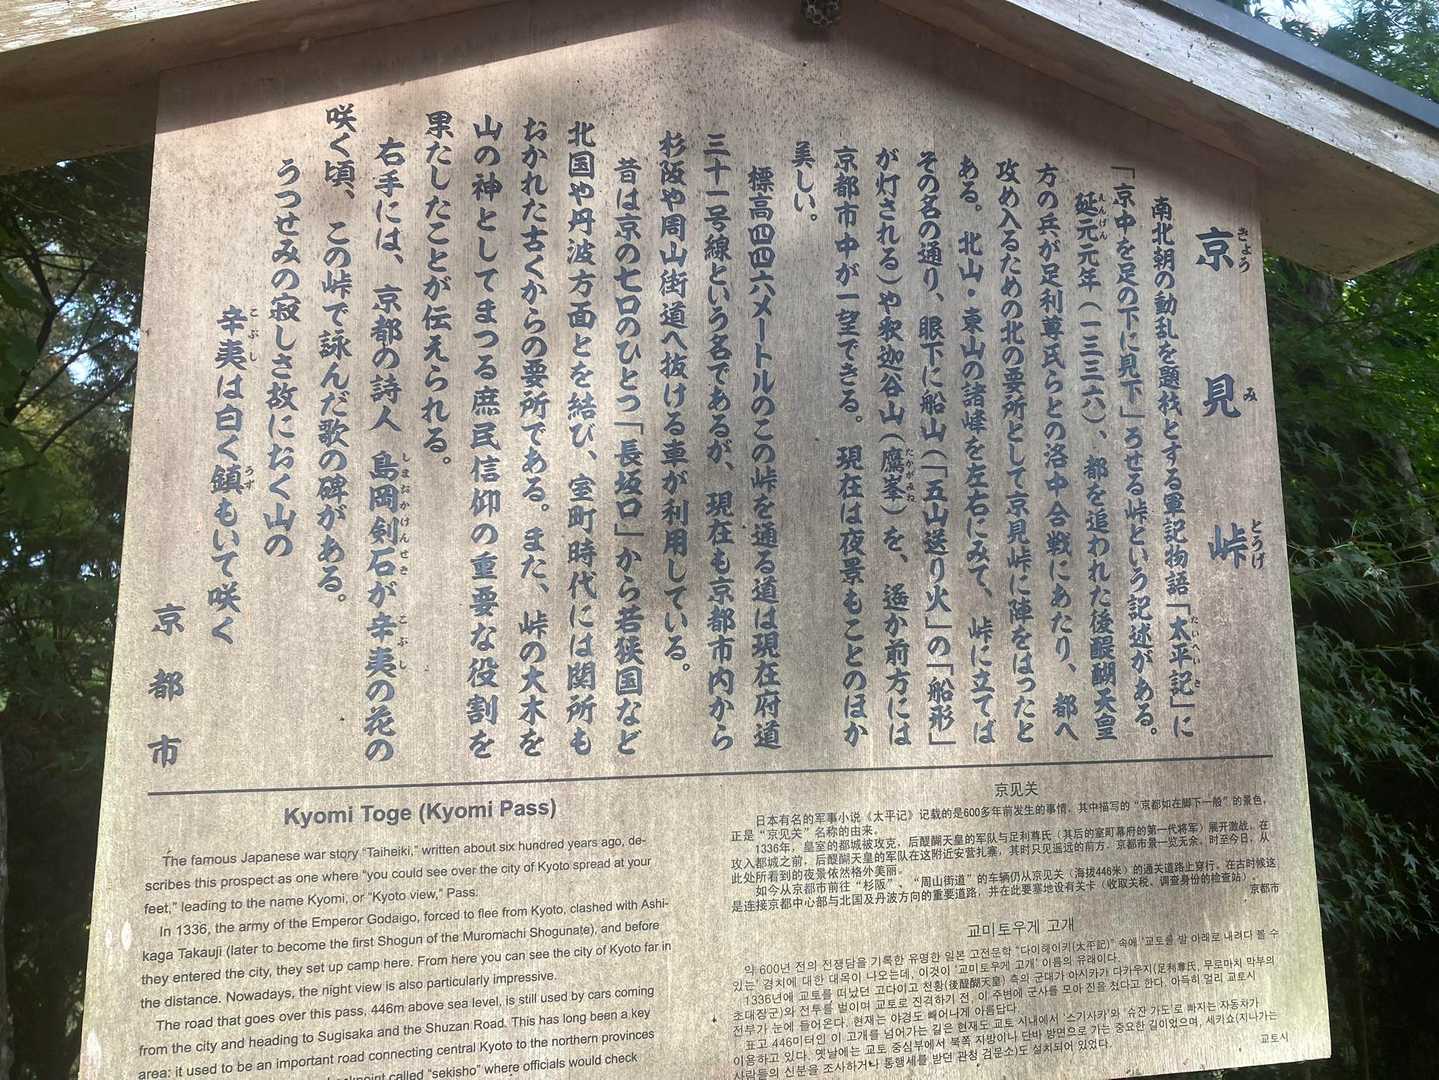 京見峠
南北朝の動乱を題材とする軍記物語「太平記」に
「京中を足の下に見下」ろせる峠という記述がある。
延元元年(一三三六)、都を追われた後醍醐天皇
方の兵が足利尊氏らとの洛中合戦にあたり、都へ
攻め入るための北の要所として京見峠に陣をはったと
ある。北山・東山の諸峰を左右にみて、峠に立てば
その名の通り、眼下に船山(「五山送り火」の「船形」
が灯される)や釈迦谷山(鷹峯)を、遥か前方には
京都市中が一望できる。現在は夜景もことのほか
美しい。
標高四四六メートルのこの峠を通る道は現在府道
三十一号線という名であるが、現在も京都市内から
杉阪や周山街道へ抜ける車が利用している。
昔は京の七口のひとつ「長坂口」から若狭国など
北国や丹波方面とを結び、室町時代には関所も
おかれた古くからの要所である。また、峠の大木を
山の神としてまつる庶民信仰の重要な役割を
果たしたことが伝えられる。
右手には、京都の詩人 島岡剣石が辛夷の花の
咲く頃、この峠で詠んだ歌の碑がある。
うつせみの寂しさ故におく山の
辛夷は白く鎮もいて咲く
京都市
Kyomi Toge (Kyomi Pass)
The famous Japanese war story "Taiheiki," written about six hundred years ago, de-
scribes this prospect as one where "you could see over the city of Kyoto spread at your
feet," leading to the name Kyomi, or "Kyoto view," Pass.
In 1336, the army of the Emperor Godaigo, forced to flee from Kyoto, clashed with Ashi-
kaga Takauji (later to become the first Shogun of the Muromachi Shogunate), and before
they entered the city, they set up camp here. From here you can see the city of Kyoto far in
the distance. Nowadays, the night view is also particularly impressive.
The road that goes over this pass, 446m above sea level, is still used by cars coming
from the city and heading to Sugisaka and the Shuzan Road. This has long been a key
area: it used to be an important road connecting central Kyoto to the northern provinces
called "sekisho" where officials would check
京见关
日本有名的军事小说《太平记》记载的是600多年前发生的事情，其中描写的“京都如在脚下一般”的景色，
正是“京见关”名称的由来。
1336年，皇室的都城被攻克，后醍醐天皇的军队与足利尊氏（其后的室町幕府的第一代将军）展开激战，在
攻入都城之前，后醍醐天皇的军队在这附近安营扎寨，其时只见遥远的前方，京都市景一览无余，时至今日，从
此处所看到的夜景依然格外美丽。
如今从京都市前往“杉阪”、“周山街道”的车辆仍从京见关（海拔446米）的通关道路上穿行，在古时候这
是连接京都中心部与北国及丹波方向的重要道路，并在此要塞地设有关卡（收取关税、调查身份的检查站）。
京都市
교미토우게 고개
약 600년 전의 전쟁담을 기록한 유명한 일본 고전문학 "다이헤이키(太平記)" 속에 '교토를 발 아래로 내려다 볼 수
있는' 경치에 대한 대목이 나오는데, 이것이 '교미토우게 고개' 이름의 유래이다.
1336년에 교토를 떠났던 고다이고 천황(後醍醐天皇) 측의 군대가 아시카가 다카우지(足利尊氏, 무로마치 막부의
초대장군)와 전투를 벌이며 교토로 진격하기 전, 이 주변에 군사를 모아 진을 쳤다고 한다. 아득히 멀리 교토시
전부가 눈에 들어온다. 현재는 야경도 빼어나게 아름답다.
표고 446미터인 이 고개를 넘어가는 길은 현재도 교토 시내에서 '스기사카'와 '슈잔 가도'로 빠지는 자동차가
이용하고 있다. 옛날에는 교토 중심부에서 북쪽 지방이나 단바 방면으로 가는 중요한 길이었으며, 세키쇼(지나가는
사람들의 신분을 조사하거나 통행세를 받던 관청 검문소)도 설치되어 있었다.
교토시